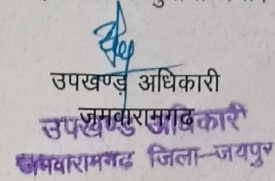 उपखण्ड़ अधिकारी
जमवारामगढ़
उपखण्ड अधिकारी
जमवारामगढ जिला-जयपुर